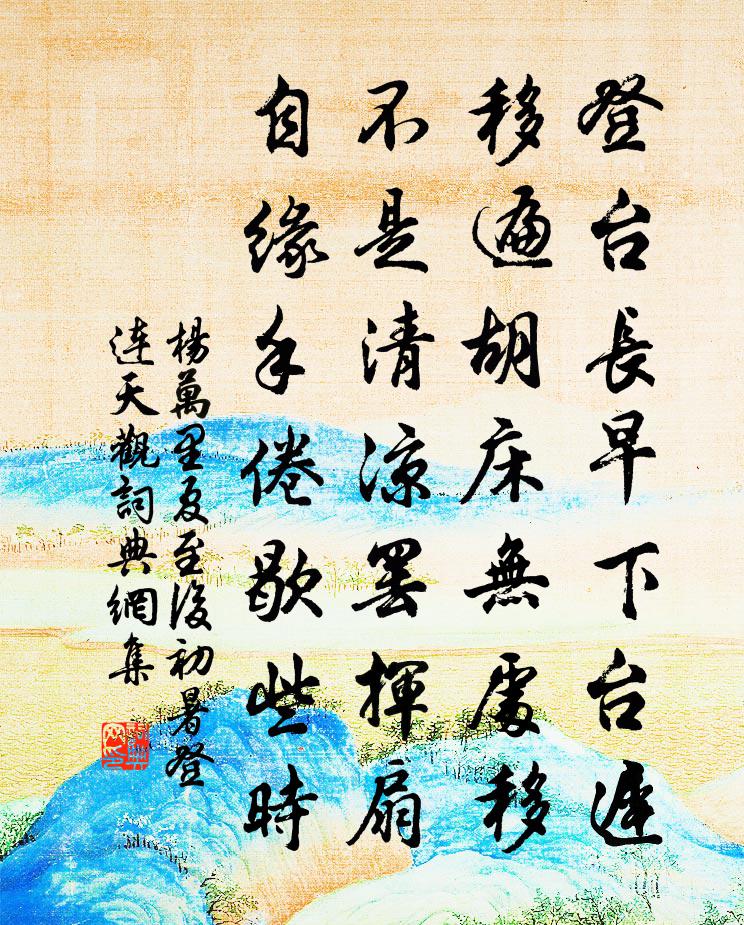 登台長早下台遲
移遍胡床無處移
不是清涼罷揮扇
自緣手倦歇些時
楊萬里夏至後初暑登
連天觀詞典網集